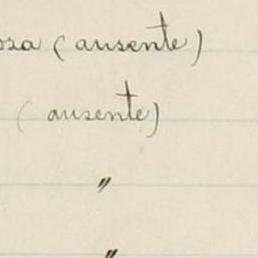 (ausente)
(ausente)
"
"